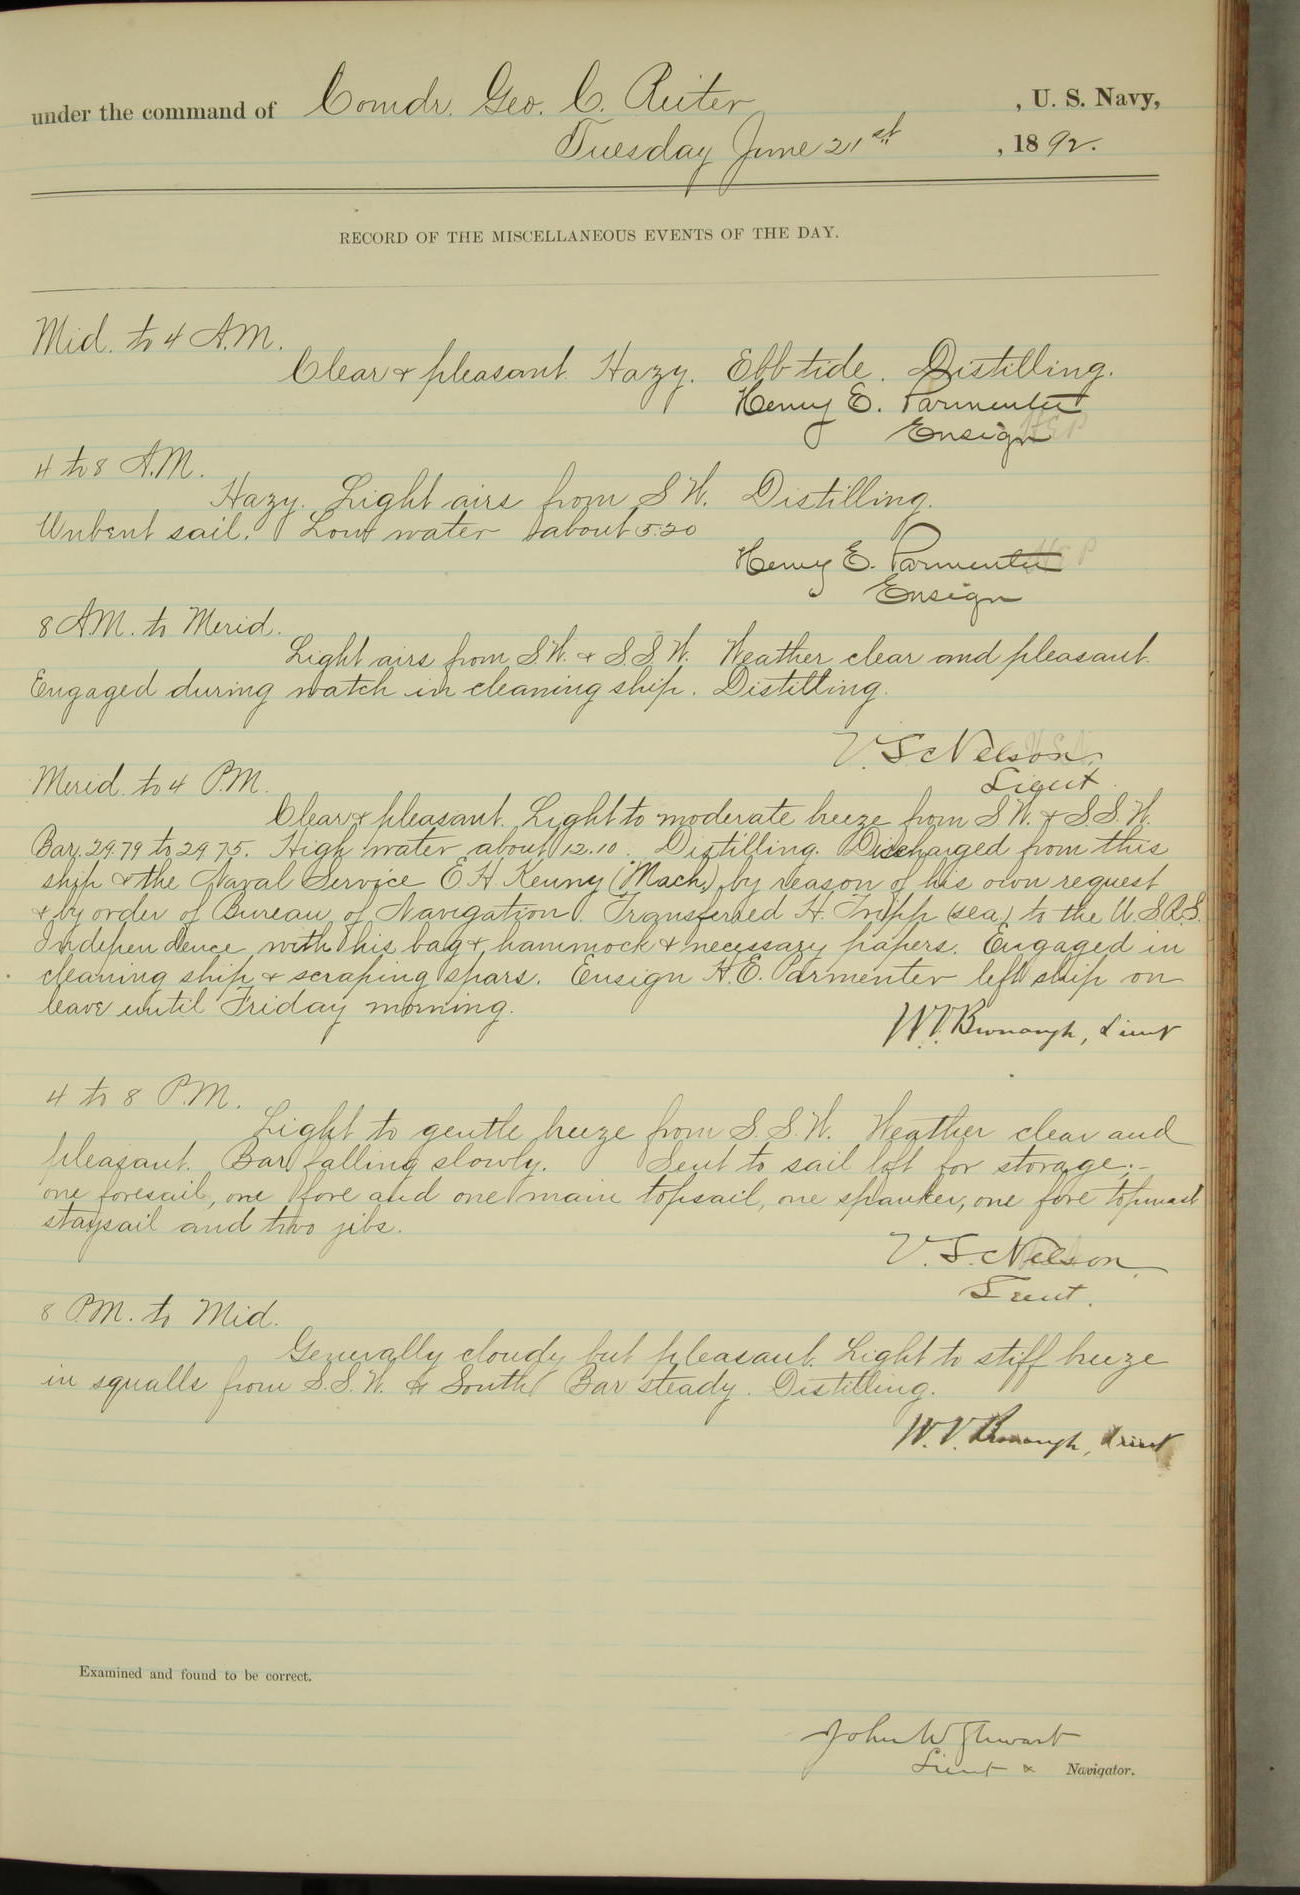 under the command of Comdr. Geo. C. Reiter, U. S. Navy,
Tuesday June 21st, 1892.
RECORD OF THE MISCELLANEOUS EVENTS OF THE DAY.
Mid. to 4 A.M.
Clear & pleasant. Hazy. Ebb tide. Distilling.
Henry E. Parmenter
Ensign
4 to 8 A.M.
Hazy. Light airs from S.W. Distilling.
Unbent sail. Low water about 5.20
Henry E. Parmenter
Ensign
8 A.M. to Merid.
Light airs from S.W. & S.S.W. Weather clear and pleasant.
Engaged during watch in cleaning ship. Distilling.
V. S. Nelson,
Lieut.
Merid. to 4 P.M.
Clear & pleasant. Light to moderate breeze from S.W. & S.S.W.
Bar. 29.79 to 29.75. High water about 12.10. Distilling. Discharged from this
ship & the Naval Service E. H. Kenny (Mach.) by reason of his own request
& by order of Bureau of Navigation. Transferred H. Tripp (sea) to the U.S.R.S.
Independence with his bag & hammock & necessary papers. Engaged in
cleaning ship & scraping spars. Ensign H. E. Parmenter left ship on
leave until Friday morning.
W. V. Bronaugh, Lieut
4 to 8 P.M.
Light to gentle breeze from S.S.W. Weather clear and
pleasant. Bar falling slowly. Sent to sail loft for storage:-
one foresail, one fore and one main topsail, one spanker, one fore topmast
staysail and two jibs.
V. S. Nelson,
Lieut.
8 P.M. to Mid.
Generally cloudy but pleasant. Light to stiff breeze
in squalls from S.S.W. & South. Bar steady. Distilling.
W. V. Bronaugh, Lieut
Examined and found to be correct.
John W Stewart
Lieut & Navigator.